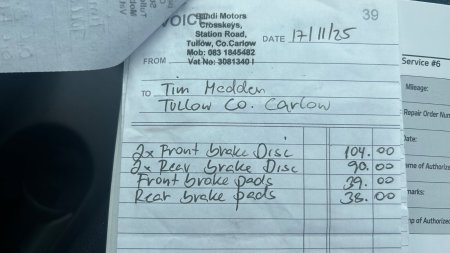 39
VOICE
Bundi Motors
Crosskeys,
Station Road,
Tullow, Co.Carlow
Mob: 083 1845482
Vat No: 3081340 I
DATE 17/11/25
FROM
TO Tim Hedden
Tullow Co. Carlow
2x Front brake Disc 104.00
2x Rear brake Disc 90.00
Front brake pads 39.00
Rear brake pads 38.00
Service #6
Mileage:
Repair Order Num
ate:
me of Authorize
marks:
of Authorize